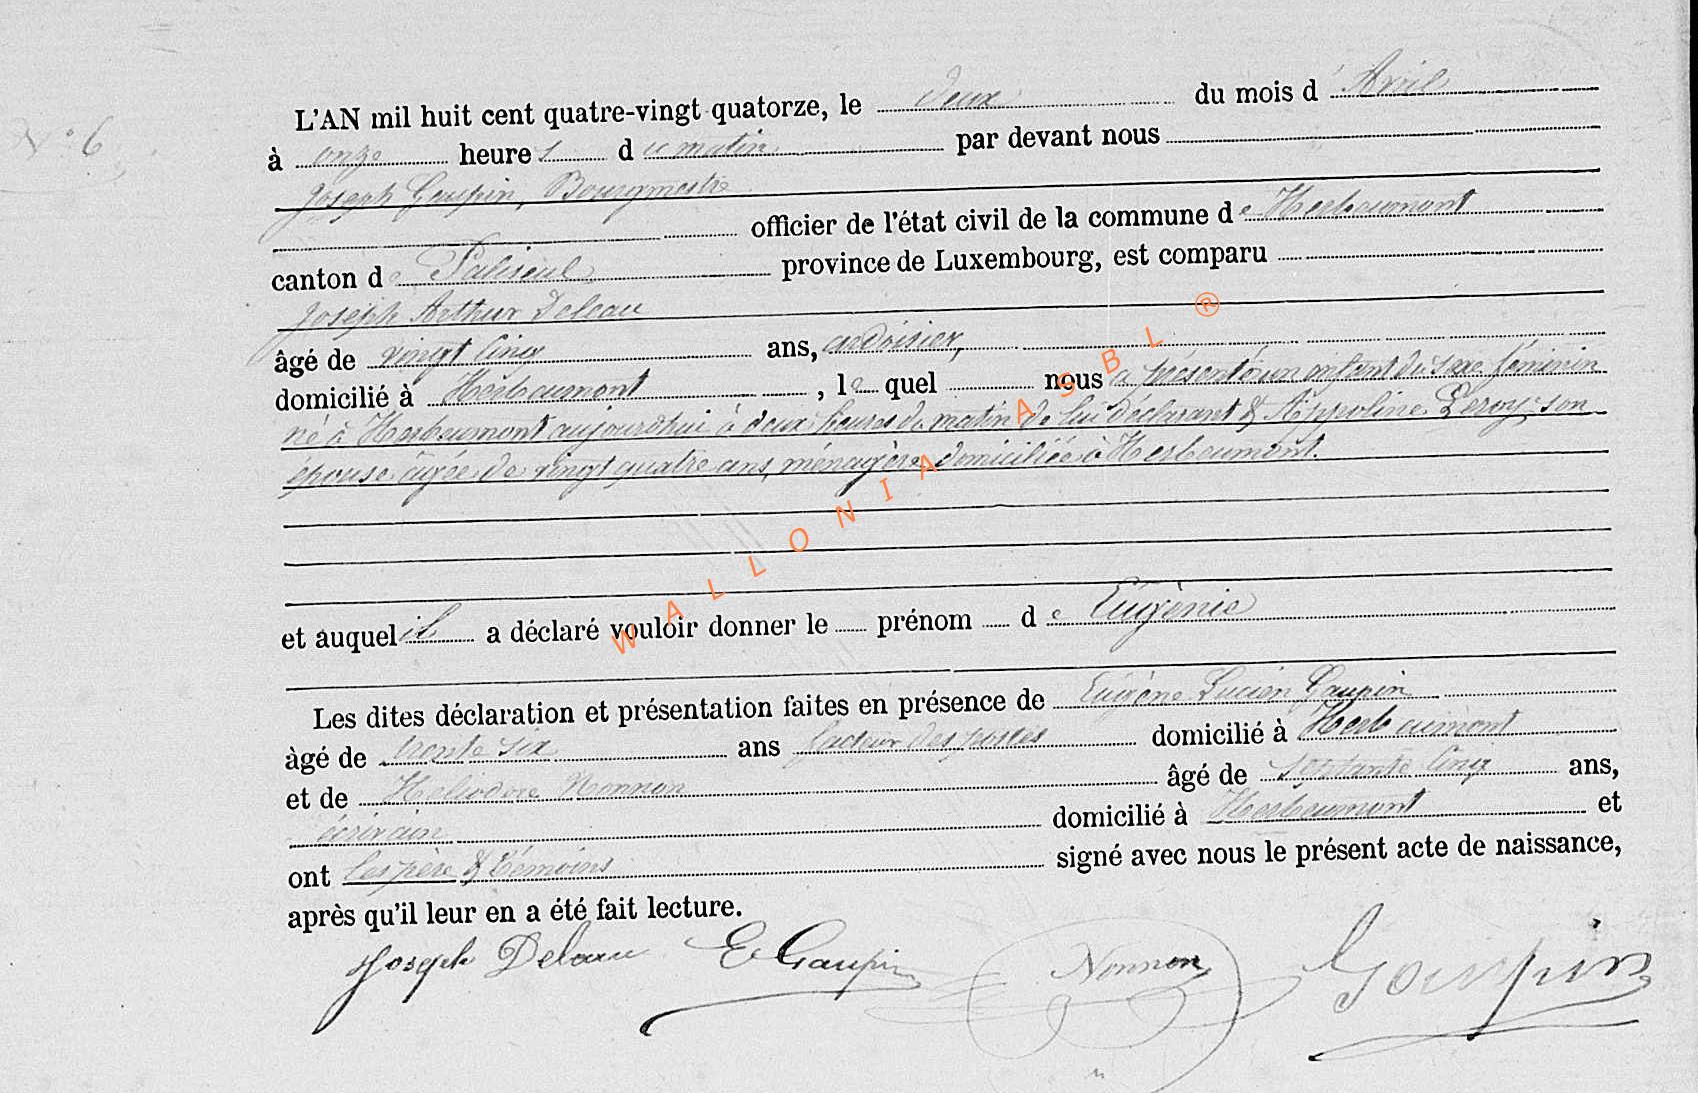 N° 6
L'AN mil huit cent quatre-vingt quatorze, le deux du mois d'Avril
à onze heures du matin par devant nous
Joseph Gaupin, Bourgmestre
officier de l'état civil de la commune de Herbeumont
canton de Paliseul province de Luxembourg, est comparu
Joseph Arthur Deleau
âgé de vingt cinq ans, ardoisier,
domicilié à Herbeumont, lequel nous a présenté un enfant du sexe féminin
né à Herbeumont aujourd'hui à deux heures du matin de lui déclarant & Appoline Leroy, son
épouse âgée de vingt quatre ans, ménagère, domiciliée à Herbeumont.
et auquel il a déclaré vouloir donner le prénom de Eugènie
Les dites déclaration et présentation faites en présence de Eugène Lucien Gaupin
âgé de trente six ans facteur des postes domicilié à Herbeumont
et de Héliodore Nonnon âgé de septante cinq ans,
écrivain domicilié à Herbeumont et
ont les père & témoins signé avec nous le présent acte de naissance,
après qu'il leur en a été fait lecture.
Joseph Deleau E Gaupin Nonnon Gaupin
WALLONIA ASBL ®